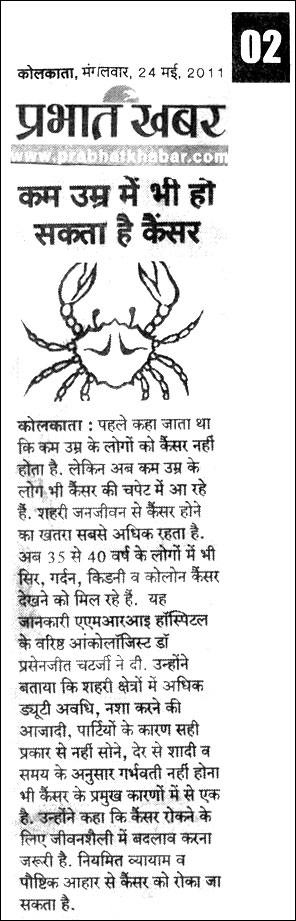 02
कोलकाता, मंगलवार, 24 मई, 2011
प्रभात खबर
www.prabhatkhabar.com
कम उम्र में भी हो
सकता है कैंसर
कोलकाता : पहले कहा जाता था
कि कम उम्र के लोगों को कैंसर नहीं
होता है. लेकिन अब कम उम्र के
लोग भी कैंसर की चपेट में आ रहे
हैं. शहरी जनजीवन से कैंसर होने
का खतरा सबसे अधिक रहता है.
अब 35 से 40 वर्ष के लोगों में भी
सिर, गर्दन, किडनी व कोलोन कैंसर
देखने को मिल रहे हैं. यह
जानकारी एएमआरआइ हॉस्पिटल
के वरिष्ठ आंकोलॉजिस्ट डॉ
प्रसेनजीत चटर्जी ने दी. उन्होंने
बताया कि शहरी क्षेत्रों में अधिक
ड्यूटी अवधि, नशा करने की
आजादी, पार्टियों के कारण सही
प्रकार से नहीं सोने, देर से शादी व
समय के अनुसार गर्भवती नहीं होना
भी कैंसर के प्रमुख कारणों में से एक
है. उन्होंने कहा कि कैंसर रोकने के
लिए जीवनशैली में बदलाव करना
जरूरी है. नियमित व्यायाम व
पौष्टिक आहार से कैंसर को रोका जा
सकता है.